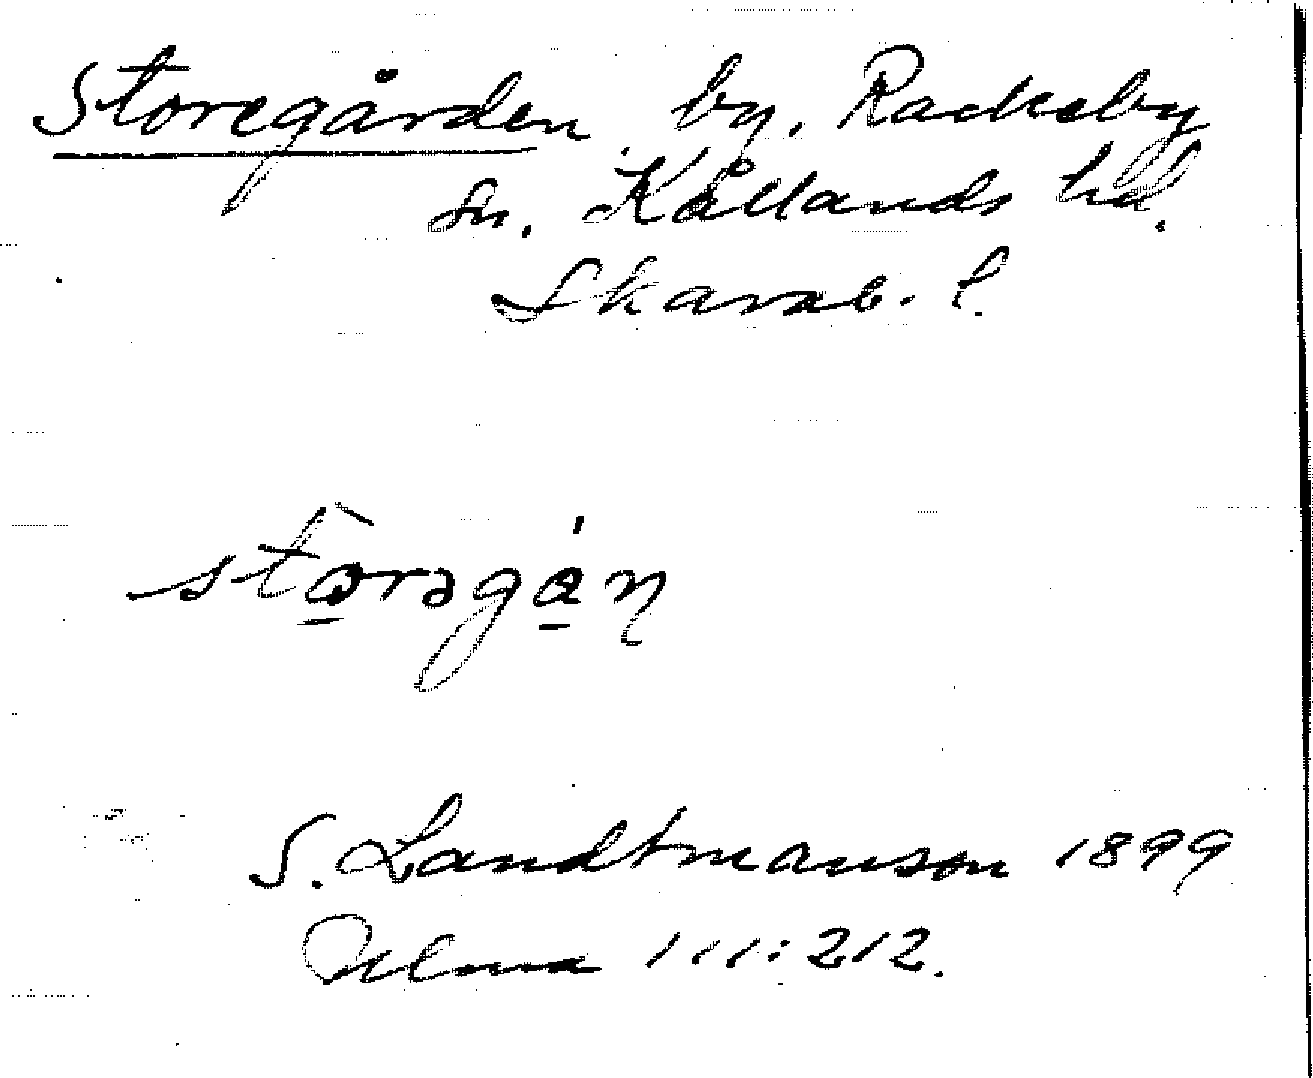 Storegården by. Rackeby
sn. Kållands hd.
Skarab. l.
storəgán
S. Landtmanson 1899
Ulma 111:212.